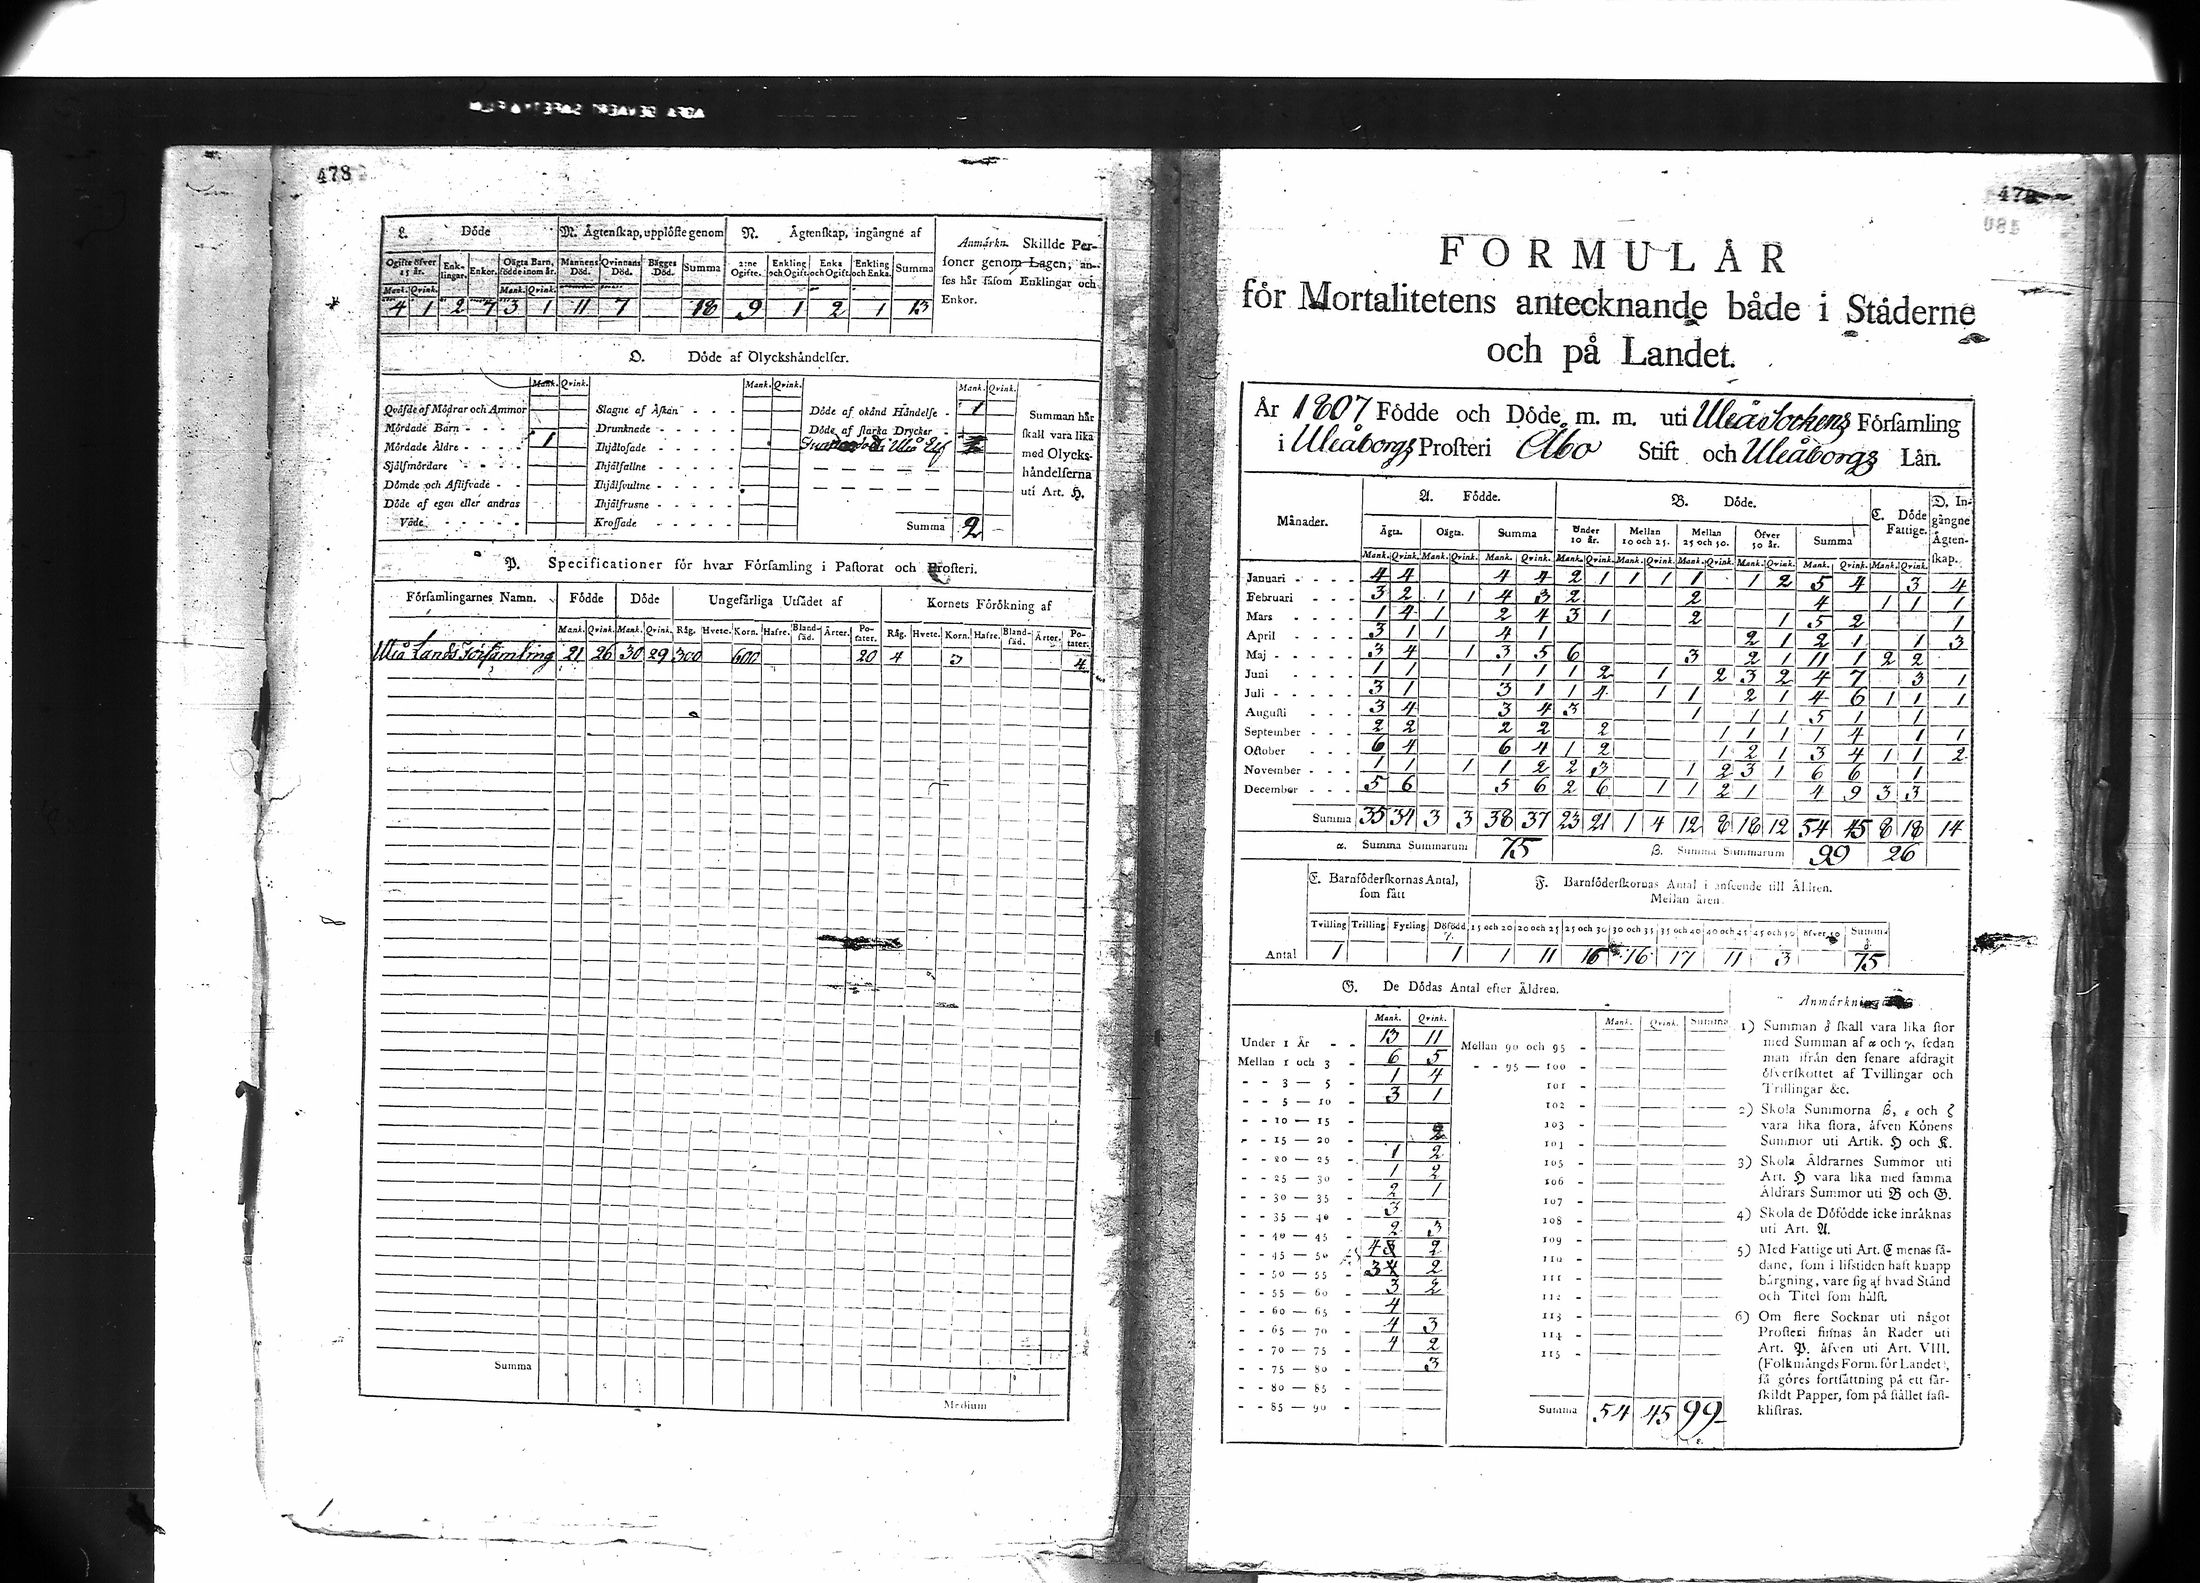 478
L. Döde
M. Ägtenskap, upplöste genom
N. Ägtenskap, ingångne af
Anmärkn. Skillde Personer genom Lagen, anses här såsom Enklingar och Enkor.
Ogifte öfver 15 år. Enklingar. Enkor. Oägta Barn, födde inom år. Mannens Död. Qvinnans Död. Bägges Död. Summa 2:ne Ogifte. Enkling och Ogift. Enka och Ogift. Enkling och Enka. Summa
Mank. Qvink. Mank. Qvink.
4 1 2 7 3 1 11 7 18 9 1 2 1 13
O. Döde af Olyckshändelser.
Mank. Qvink. Mank. Qvink. Mank. Qvink.
Qväfde af Mödrar och Ammor Slagne af Åskan - - - Döde af okänd Händelse - 1
Mördade Barn - - - - Drunknade - - - - Döde af starka Drycker -
Mördade Äldre - - - - 1 Ihjälosade - - - - Uleå Elf
Sjelfmördare - - - - Ihjälfallne - - - -
Dömde och Aflifvade - - Ihjälsvultne - - - -
Döde af egen eller andras Ihjälfrusne - - - -
Våde - - - - - Krossade - - - - Summa 2
Summan här
skall vara lika
med Olycks-
händelserna
uti Art. H.
P. Specificationer för hvar Församling i Pastorat och Prosteri.
Församlingarnes Namn. Födde Döde Ungefärliga Utsädet af Kornets Förökning af
Mank. Qvink. Mank. Qvink. Råg. Hvete. Korn. Hafre. Bland-säd. Ärter. Potater. Råg. Hvete. Korn. Hafre. Bland-säd. Ärter. Potater.
Uleå Lands Församling 21 26 30 29 300 600 20 4 3 4
Summa
Medium
FORMULÄR
för Mortalitetens antecknande både i Städerne
och på Landet.
År 1807 Födde och Döde m. m. uti Uleå Sockens Församling
i Uleåborgs Prosteri Åbo Stift och Uleåborgs Län.
Månader. A. Födde. B. Döde. C. Döde Fattige. D. Ingångne Ägtenskap.
Ägta. Oägta. Summa Under 10 år. Mellan 10 och 25. Mellan 25 och 50. Öfver 50 år. Summa
Mank. Qvink. Mank. Qvink. Mank. Qvink. Mank. Qvink. Mank. Qvink. Mank. Qvink. Mank. Qvink. Mank. Qvink. Mank. Qvink.
Januari - - - - 4 4 4 4 2 1 1 1 1 1 2 5 4 3 4
Februari - - - 3 2 1 1 4 3 2 2 4 1 1 1
Mars - - - - 1 4 1 2 4 3 1 2 1 5 2 1
April - - - - 3 1 1 4 1 2 1 2 1 1 3
Maj - - - - - 3 4 1 3 5 6 3 2 1 11 1 2 2
Juni - - - - 1 1 1 1 1 2 1 2 3 2 4 7 3 1
Juli - - - - - 3 1 3 1 1 4 1 1 2 1 4 6 1 1 1
Augusti - - - 3 4 3 4 3 1 1 1 5 1 1
September - - - 2 2 2 2 2 1 1 1 1 4 1 1
October - - - 6 4 6 4 1 2 1 2 1 3 4 1 1 2
November - - - 1 1 1 1 2 2 3 1 2 3 1 6 6 1
December - - - 5 6 5 6 2 6 1 1 2 1 4 9 3 3
Summa 35 34 3 3 38 37 23 21 1 4 12 8 18 12 54 45 8 18 14
α. Summa Summarum 75 β. Summa Summarum 99 26
E. Barnföderskornas Antal, som fått
F. Barnföderskornas Antal i anseende till Äldren. Mellan åren.
Tvilling Trilling Fyrling Dödfödd γ. 15 och 20 20 och 25 25 och 30 30 och 35 35 och 40 40 och 45 45 och 50 öfver 50 Summa δ.
Antal 1 1 1 11 16 16 17 11 3 75
G. De Dödas Antal efter Äldren.
Mank. Qvink. Mank. Qvink. Summa
Under 1 År - - 13 11
Mellan 1 och 3 - 6 5
- - 3 — 5 - 1 4
- - 5 — 10 - 3 1
- - 10 — 15 -
- - 15 — 20 - 2
- - 20 — 25 - 1 2
- - 25 — 30 - 1 2
- - 30 — 35 - 2 1
- - 35 — 40 - 3
- - 40 — 45 - 2 3
- - 45 — 50 - 4 2
- - 50 — 55 - 3 2
- - 55 — 60 - 3 2
- - 60 — 65 - 4
- - 65 — 70 - 4 3
- - 70 — 75 - 4 2
- - 75 — 80 - 3
- - 80 — 85 -
- - 85 — 90 -
Mellan 90 och 95 -
- - 95 — 100 -
101 -
102 -
103 -
104 -
105 -
106 -
107 -
108 -
109 -
110 -
111 -
112 -
113 -
114 -
115 -
Summa 54 45 99
ε.
Anmärkningar
1) Summan δ skall vara lika stor
med Summan af α och γ, sedan
man ifrån den senare afdragit
öfverskottet af Tvillingar och
Trillingar &c.
2) Skola Summorna β, ε och ζ
vara lika stora, äfven Könens
Summor uti Artik. H och K.
3) Skola Äldrarnes Summor uti
Art. H vara lika med samma
Äldrars Summor uti B och G.
4) Skola de Dödfödde icke inräknas
uti Art. A.
5) Med Fattige uti Art. C menas så-
dane, som i lifstiden haft knapp
bärgning, vare sig af hvad Stånd
och Titel som hälst.
6) Om flere Socknar uti något
Prosteri finnas än Rader uti
Art. P. äfven uti Art. VIII.
(Folkmängds Form. för Landet),
så göres fortsättning på ett sär-
skildt Papper, som på stället fast-
klistras.